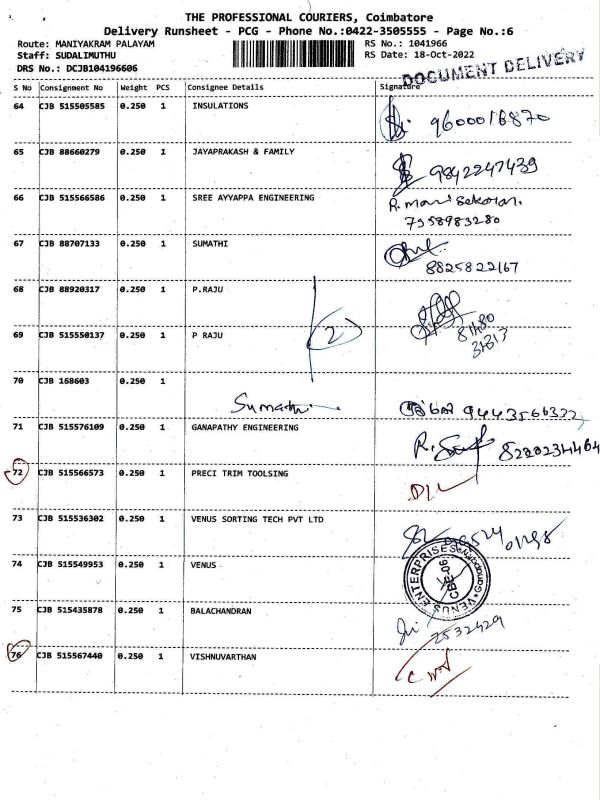 THE PROFESSIONAL COURIERS, Coimbatore
Delivery Runsheet - PCG - Phone No.:0422-3505555 - Page No.:6
Route: MANIYAKRAM PALAYAM RS No.: 1041966
Staff: SUDALIMUTHU RS Date: 18-Oct-2022
DRS No.: DCJB104196606 DOCUMENT DELIVERY
S No Consignment No Weight PCS Consignee Details Signature
64 CJB 515505585 0.250 1 INSULATIONS 9600016870
65 CJB 88660279 0.250 1 JAYAPRAKASH & FAMILY 9842247439
66 CJB 515566586 0.250 1 SREE AYYAPPA ENGINEERING R. Manisekaran.
7358983280
67 CJB 88707133 0.250 1 SUMATHI
8825822167
68 CJB 88920317 0.250 1 P.RAJU
(2)
69 CJB 515550137 0.250 1 P RAJU 81480
31313
70 CJB 168603 0.250 1
Sumathi 9443566322
71 CJB 515576109 0.250 1 GANAPATHY ENGINEERING
72 CJB 515566573 0.250 1 PRECI TRIM TOOLSING
D/L
73 CJB 515536302 0.250 1 VENUS SORTING TECH PVT LTD
74 CJB 515549953 0.250 1 VENUS VENUS ENTERPRISES CBE-06
75 CJB 515435878 0.250 1 BALACHANDRAN
2532429
76 CJB 515567440 0.250 1 VISHNUVARTHAN